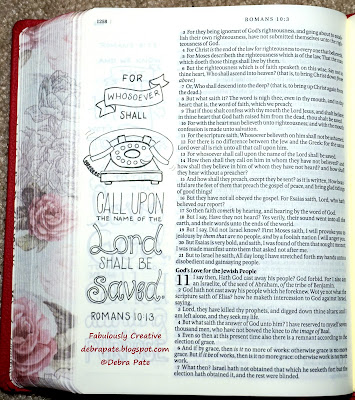 1258
ROMANS 10:3
FOR
WHOSOEVER
SHALL
CALL UPON
THE NAME OF THE
Lord
SHALL BE
Saved.
ROMANS 10:13
Fabulously Creative
debrapate.blogspot.com
©Debra Pate
3 For they being ignorant of God's righteousness, and going about to
lish their own righteousness, have not submitted themselves unto the
teousness of God.
4 For Christ is the end of the law for righteousness to every one that
5 For Moses describeth the righteousness which is of the law, That the
which doeth those things shall live by them.
6 But the righteousness which is of faith speaketh on this wise, Say not
thine heart, Who shall ascend into heaven? (that is, to bring Christ down
above:)
7 Or, Who shall descend into the deep? (that is, to bring up Christ again
the dead.)
8 But what saith it? The word is nigh thee, even in thy mouth, and in
heart: that is, the word of faith, which we preach;
9 That if thou shalt confess with thy mouth the Lord Jesus, and shalt
in thine heart that God hath raised him from the dead, thou shalt be saved.
10 For with the heart man believeth unto righteousness; and with the mouth
confession is made unto salvation.
11 For the scripture saith, Whosoever believeth on him shall not be ashamed.
12 For there is no difference between the Jew and the Greek: for the same
Lord over all is rich unto all that call upon him.
13 For whosoever shall call upon the name of the Lord shall be saved.
14 How then shall they call on him in whom they have not believed? and
how shall they believe in him of whom they have not heard? and how shall
they hear without a preacher?
15 And how shall they preach, except they be sent? as it is written, How
tiful are the feet of them that preach the gospel of peace, and bring glad tidings
of good things!
16 But they have not all obeyed the gospel. For Esaias saith, Lord, who hath
believed our report?
17 So then faith cometh by hearing, and hearing by the word of God.
18 But I say, Have they not heard? Yes verily, their sound went into all the
earth, and their words unto the ends of the world.
19 But I say, Did not Israel know? First Moses saith, I will provoke you to
jealousy by them that are no people, and by a foolish nation I will anger you.
20 But Esaias is very bold, and saith, I was found of them that sought me not; I
was made manifest unto them that asked not after me.
21 But to Israel he saith, All day long I have stretched forth my hands unto a
disobedient and gainsaying people.
God's Love for the Jewish People
11 I say then, Hath God cast away his people? God forbid. For I also am
an Israelite, of the seed of Abraham, of the tribe of Benjamin.
2 God hath not cast away his people which he foreknew. Wot ye not what the
scripture saith of Elias? how he maketh intercession to God against Israel,
saying,
3 Lord, they have killed thy prophets, and digged down thine altars; and I
am left alone, and they seek my life.
4 But what saith the answer of God unto him? I have reserved to myself seven
thousand men, who have not bowed the knee to the image of Baal.
5 Even so then at this present time also there is a remnant according to the
election of grace.
6 And if by grace, then is it no more of works: otherwise grace is no more
grace. But if it be of works, then is it no more grace: otherwise work is no more
work.
7 What then? Israel hath not obtained that which he seeketh for; but the
election hath obtained it, and the rest were blinded